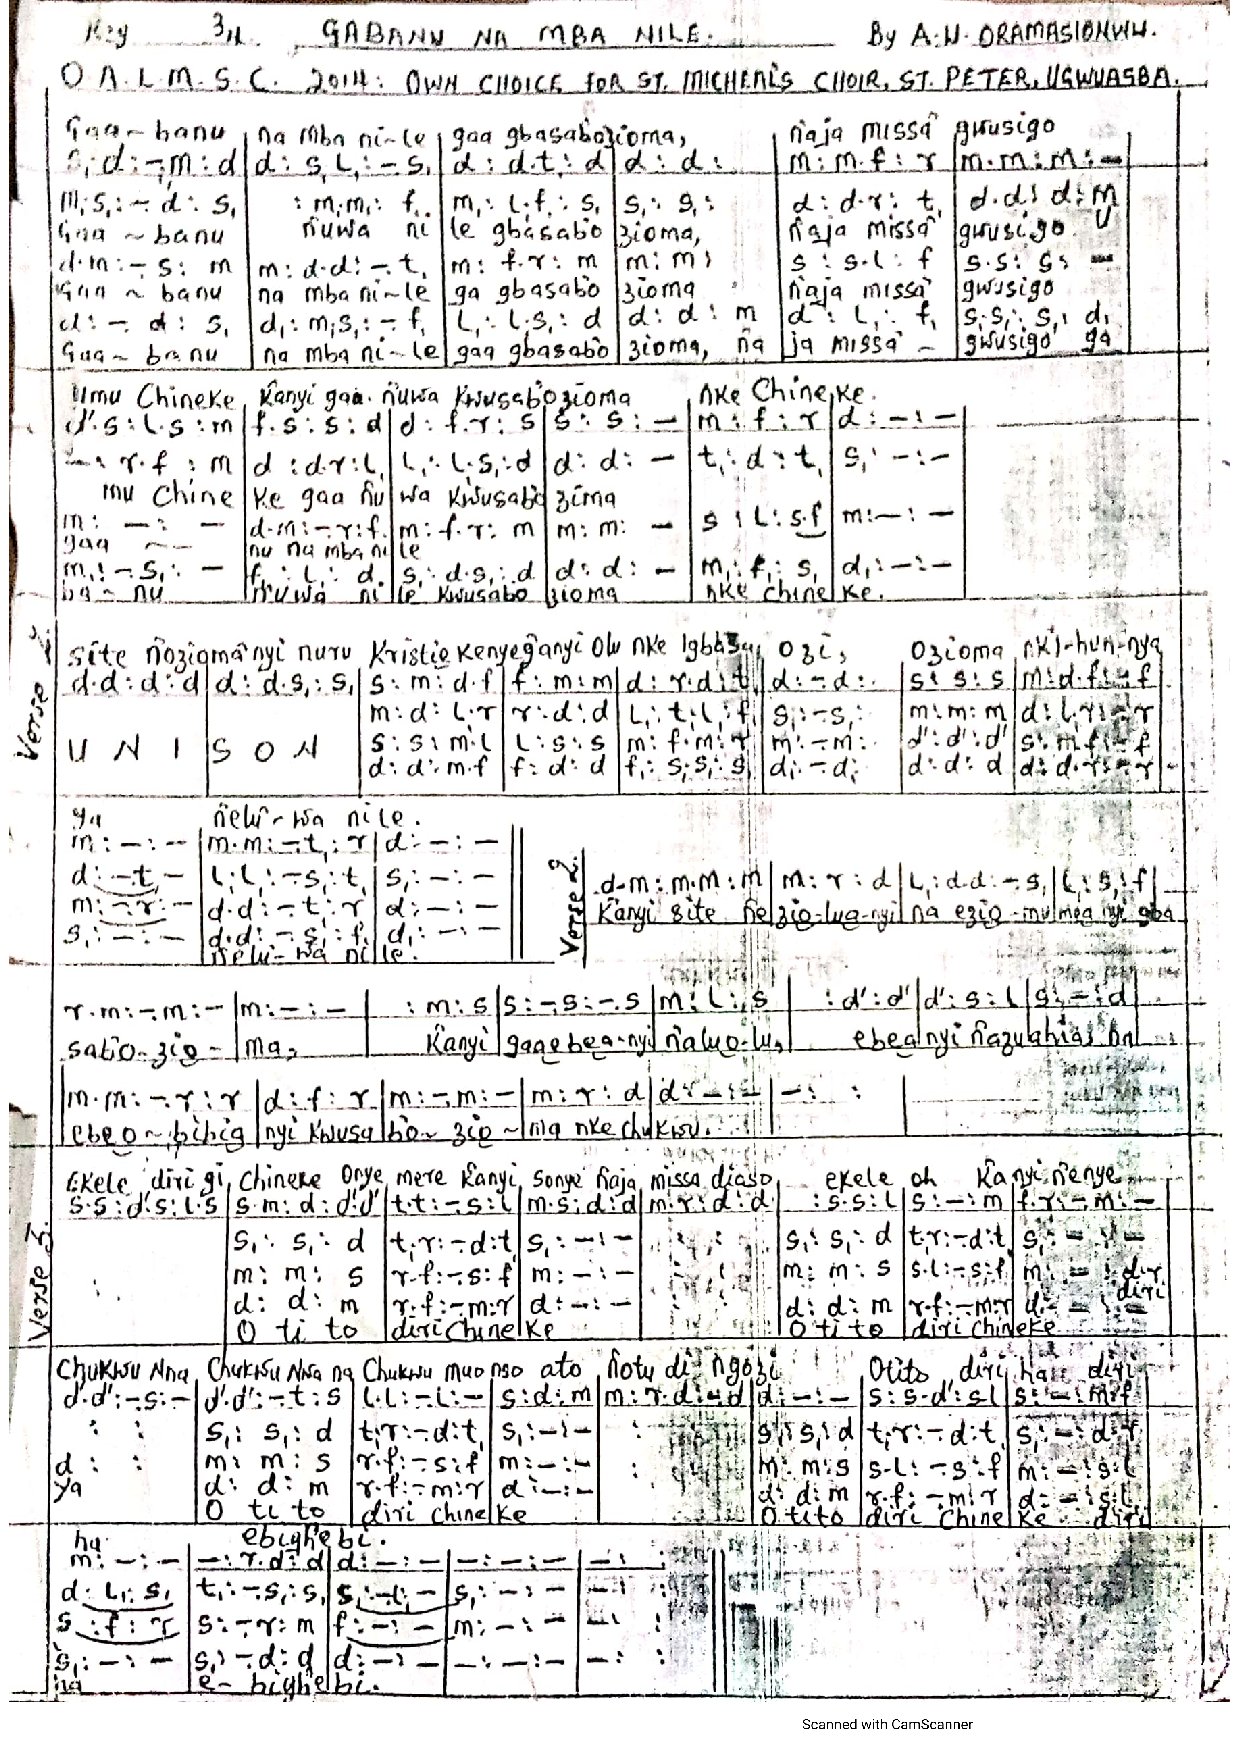 Key 3/4. GABANU NA MBA NILE. By A.N. ORAMASIONWU.
O.A.L.M.S.C. 2014: OWN CHOICE FOR ST. MICHEAL'S CHOIR, ST. PETER, UGWUAGBA.
Gaa~banu na mba ni~le gaa gbasabozioma, ñaja missa gwusigo
s, d:-,m:d d: s, l,:-s, d: d.t,: d d: d: m: m.f: r m.m: m: -
m,s,:- d: s, : m,m,: f, m,: l,f,: s, s,: s,: d: d.r: t, d.d: d: m
Gaa~banu ñuwa ni le gbasabo zioma, ñaja missa gwusigo
d.m:- s: m m: d.d:-t, m: f.r: m m: m: s: s.l: f s.s: s: -
Gaa~banu na mba ni~le ga gbasabo zioma ñaja missa gwusigo
d:- d: s, d,: m,s,:- f, l,: l,s,: d d: d: m d: l,: f, s,s,: s,: d,
Gaa~banu na mba ni~le gaa gbasabo zioma, ña ja missa~ gwusigo ga
Umu Chineke kanyi gaa ñuwa kwusabozioma nke Chineke.
d'.s: l.s: m f.s: s: d d: f.r: s s: s: - m: f: r d: -: -
-: r.f: m d: d.r: l, l,: l,s,: d d: d: - t,: d: t, s,: -: -
mu Chine ke gaa ñu wa kwusabo zima
m: -: - d.m:-r: f m: f.r: m m: m: - s: l: s.f m: -: -
gaa ~~ nu na mba ni le
m,:- s,: - f,: l,: d s,: d.s,: d d: d: - m,: f,: s, d,: -: -
ba~nu ñuwa ni le kwusabo zioma nke chine ke.
Verse 1.
Site ñozioma nyi nuru Kristie kenyeganyi olu nke Igbasa, ozi, ozioma nki-hun-nya
d.d: d: d d: d.s,: s, s: m: d.f f: m: m d: r.d: t, d:-d: s: s: s m: d.f:-f
m: d: l,r r: d: d l,: t,: l,: f, s,:-s,: m: m: m d: l,r:-r
U N I S O N s: s: m.l l: s: s m: f.m: r m:-m: d': d': d' s: m.f:-f
d: d: m.f f: d: d f,: s,s,: s, d,:-d, d: d: d d: d.r:-r
ya ñelu-wa nile.
m: -: - m.m:-t,: r d: -: -
d: -t,- l,l,:-s,: t, s,: -: -
m: -r: - d.d:-t,: r d: -: -
s,: -: - d.d:-s,: f, d,: -: -
ñelu-wa ni le.
Verse 2. d-m: m.m: m m: r: d l,: d.d:-s, l,: s,: f
Kanyi site ñe zio-lua-nyi na ezio-mumea nyi gba
r.m:-m: - m: -: - : m: s s:-s:-.s m: l:, s : d': d' d': s: l s: -: d
sabo-zio- ma, Kanyi gaaebea-nyi ñaluo-lu, ebea nyi ñazuahias ña
m.m:-r: r d: f: r m:-m:- m: r: d d: -: - -: :
ebeo~bibia nyi kwusa bo~zio~ma nke chukwu.
Verse 3.
Ekele diri gi, Chineke Onye mere kanyi sonye ñaja missa diaso, ekele oh kanyi ñenye
s.s: d's: l.s s.m: d: d'.d' t.t:-s: l m.s: d: d m: r: d: d : s.s: l s: -: m f.r:-m: -
s,: s,: d t,r:-d: t, s,: -: - s,: s,: d t,r:-d: t, s,: -: -
m: m: s r.f:-s: f m: -: - m: m: s s.l:-s: f m: -: d.r
d: d: m r.f:-m: r d: -: - d: d: m r.f:-m: r d: -: - diri
O ti to diri Chine ke O ti to diri Chineke
Chukwu Nna Chukwu Nwa na Chukwu muo nso ato ñotu di ngozi Otito diri ha diri
d'.d':-s:- d'.d':-t: s l.l:-l:- s: d: m m: r.d:-d d: -: - s: s-d': s.l s: -: m.f
: : s,: s,: d t,r:-d: t, s,: -: - : s,: s,: d t,r:-d: t, s,: -: d.r
d : : m: m: s r.f:-s: f m: -: - : m: m: s s-l:-s: f m: -: s.l
ya d: d: m r.f:-m: r d: -: - d: d: m r.f:-m: r d: -: s.l
O ti to diri Chine ke O ti to diri Chine ke diri
ha ebighebi.
m: -: - -: r.d: d d: -: - -: -: - -:
d: l,: s, t,:-s,: s, s,:-l,:- s,: -: - -: :
s: f: r s:-r: m f: -: - m: -: - -: :
s,: -: - s,:-d: d d: -: - -: -: - -: :
ha e-bighebi.
Scanned with CamScanner